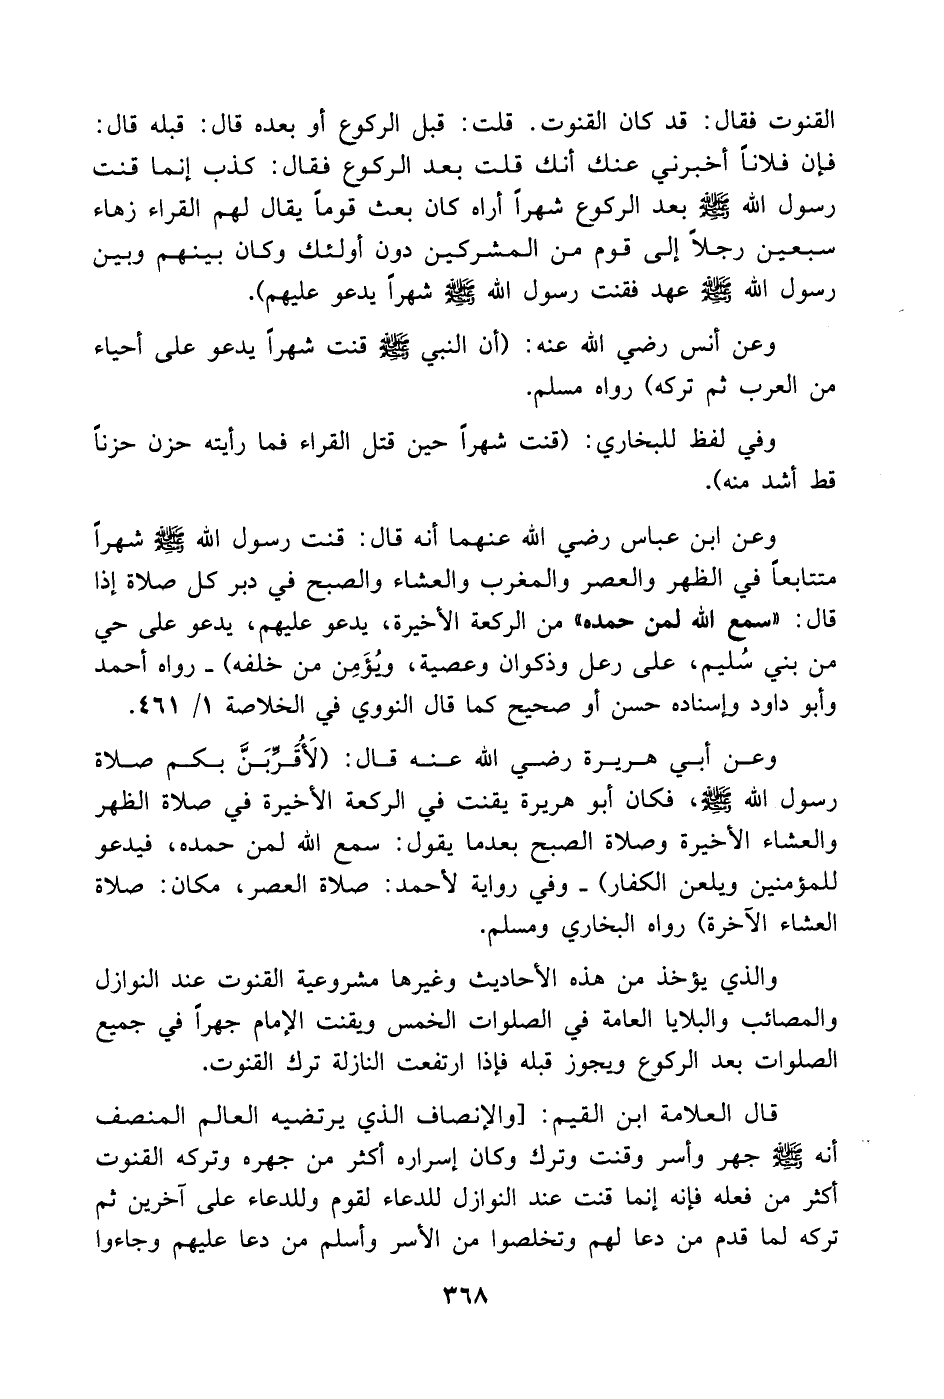 القنوت فقال: قد كان القنوت. قلت: قبل الركوع أو بعده قال: قبله قال:
فإن فلاناً أخبرني عنك أنك قلت بعد الركوع فقال: كذب إنما قنت
رسول الله ﷺ بعد الركوع شهراً أراه كان بعث قوماً يقال لهم القراء زهاء
سبعين رجلاً إلى قوم من المشركين دون أولئك وكان بينهم وبين
رسول الله ﷺ عهد فقنت رسول الله ﷺ شهراً يدعو عليهم).
وعن أنس رضي الله عنه: (أن النبي ﷺ قنت شهراً يدعو على أحياء
من العرب ثم تركه) رواه مسلم.
وفي لفظ للبخاري: (قنت شهراً حين قتل القراء فما رأيته حزن حزناً
قط أشد منه).
وعن ابن عباس رضي الله عنهما أنه قال: قنت رسول الله ﷺ شهراً
متتابعاً في الظهر والعصر والمغرب والعشاء والصبح في دبر كل صلاة إذا
قال: «سمع الله لمن حمده» من الركعة الأخيرة، يدعو عليهم، يدعو على حي
من بني سُليم، على رعل وذكوان وعصية، ويُؤَمِن من خلفه) ـ رواه أحمد
وأبو داود وإسناده حسن أو صحيح كما قال النووي في الخلاصة ١/ ٤٦١.
وعن أبي هريرة رضي الله عنه قال: (لَأُقَرِّبَنَّ بكم صلاة
رسول الله ﷺ، فكان أبو هريرة يقنت في الركعة الأخيرة في صلاة الظهر
والعشاء الأخيرة وصلاة الصبح بعدما يقول: سمع الله لمن حمده، فيدعو
للمؤمنين ويلعن الكفار) ـ وفي رواية لأحمد: صلاة العصر، مكان: صلاة
العشاء الآخرة) رواه البخاري ومسلم.
والذي يؤخذ من هذه الأحاديث وغيرها مشروعية القنوت عند النوازل
والمصائب والبلايا العامة في الصلوات الخمس ويقنت الإمام جهراً في جميع
الصلوات بعد الركوع ويجوز قبله فإذا ارتفعت النازلة ترك القنوت.
قال العلامة ابن القيم: [والإنصاف الذي يرتضيه العالم المنصف
أنه ﷺ جهر وأسر وقنت وترك وكان إسراره أكثر من جهره وتركه القنوت
أكثر من فعله فإنه إنما قنت عند النوازل للدعاء لقوم وللدعاء على آخرين ثم
تركه لما قدم من دعا لهم وتخلصوا من الأسر وأسلم من دعا عليهم وجاءوا
٣٦٨